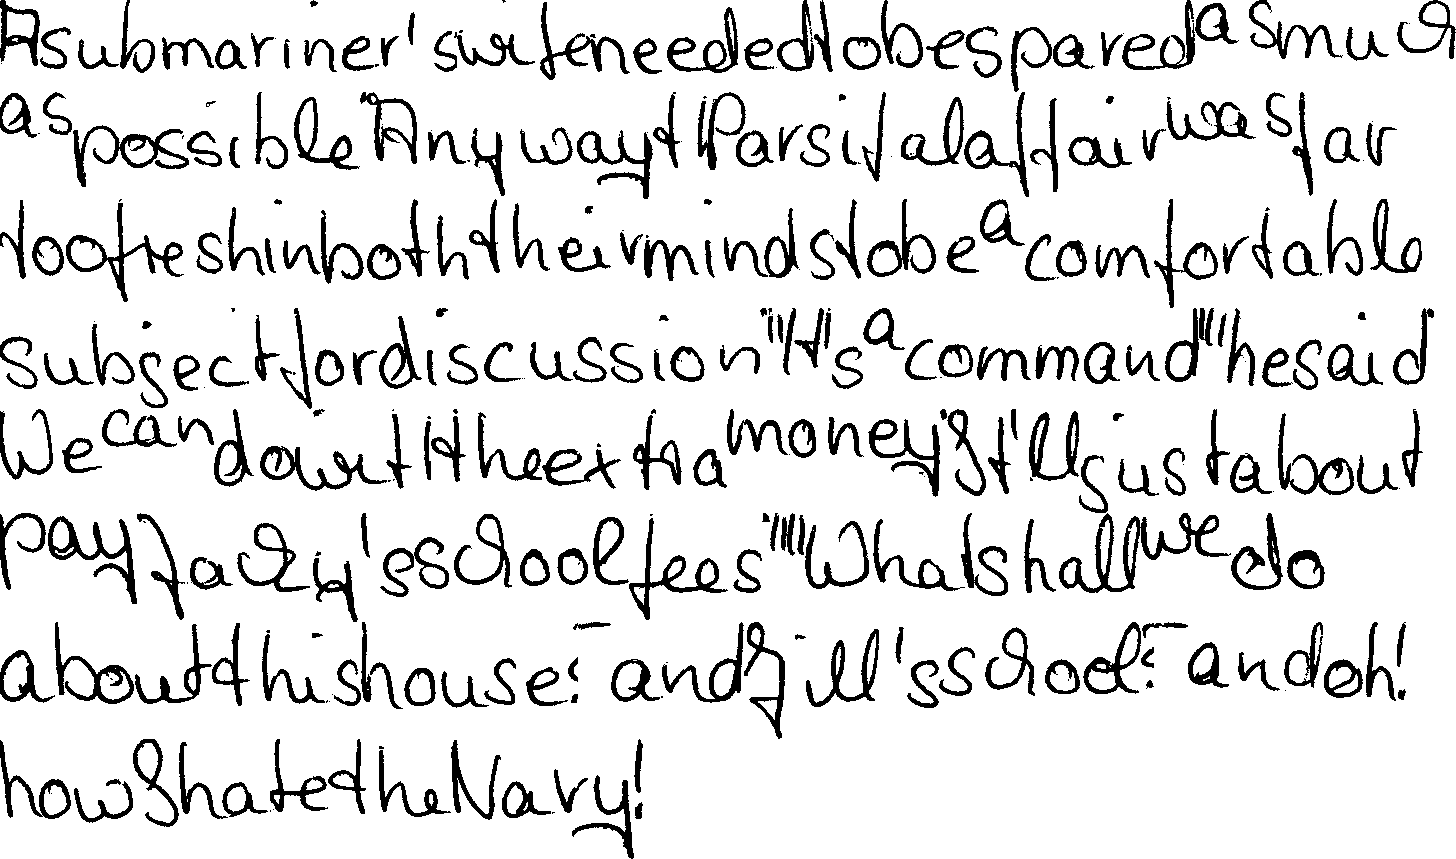 A submariner's wife needed to be spared as much
as possible. Anyway t Parsifal affair was far
too fresh in both their minds to be a comfortable
subject for discussion. "It's a command" he said
We can do wit t the extra money It'll just about
pay Jacky's school fees" "What shall we do
about this house? - and Jill's school? - and oh!
how I hate the Navy!